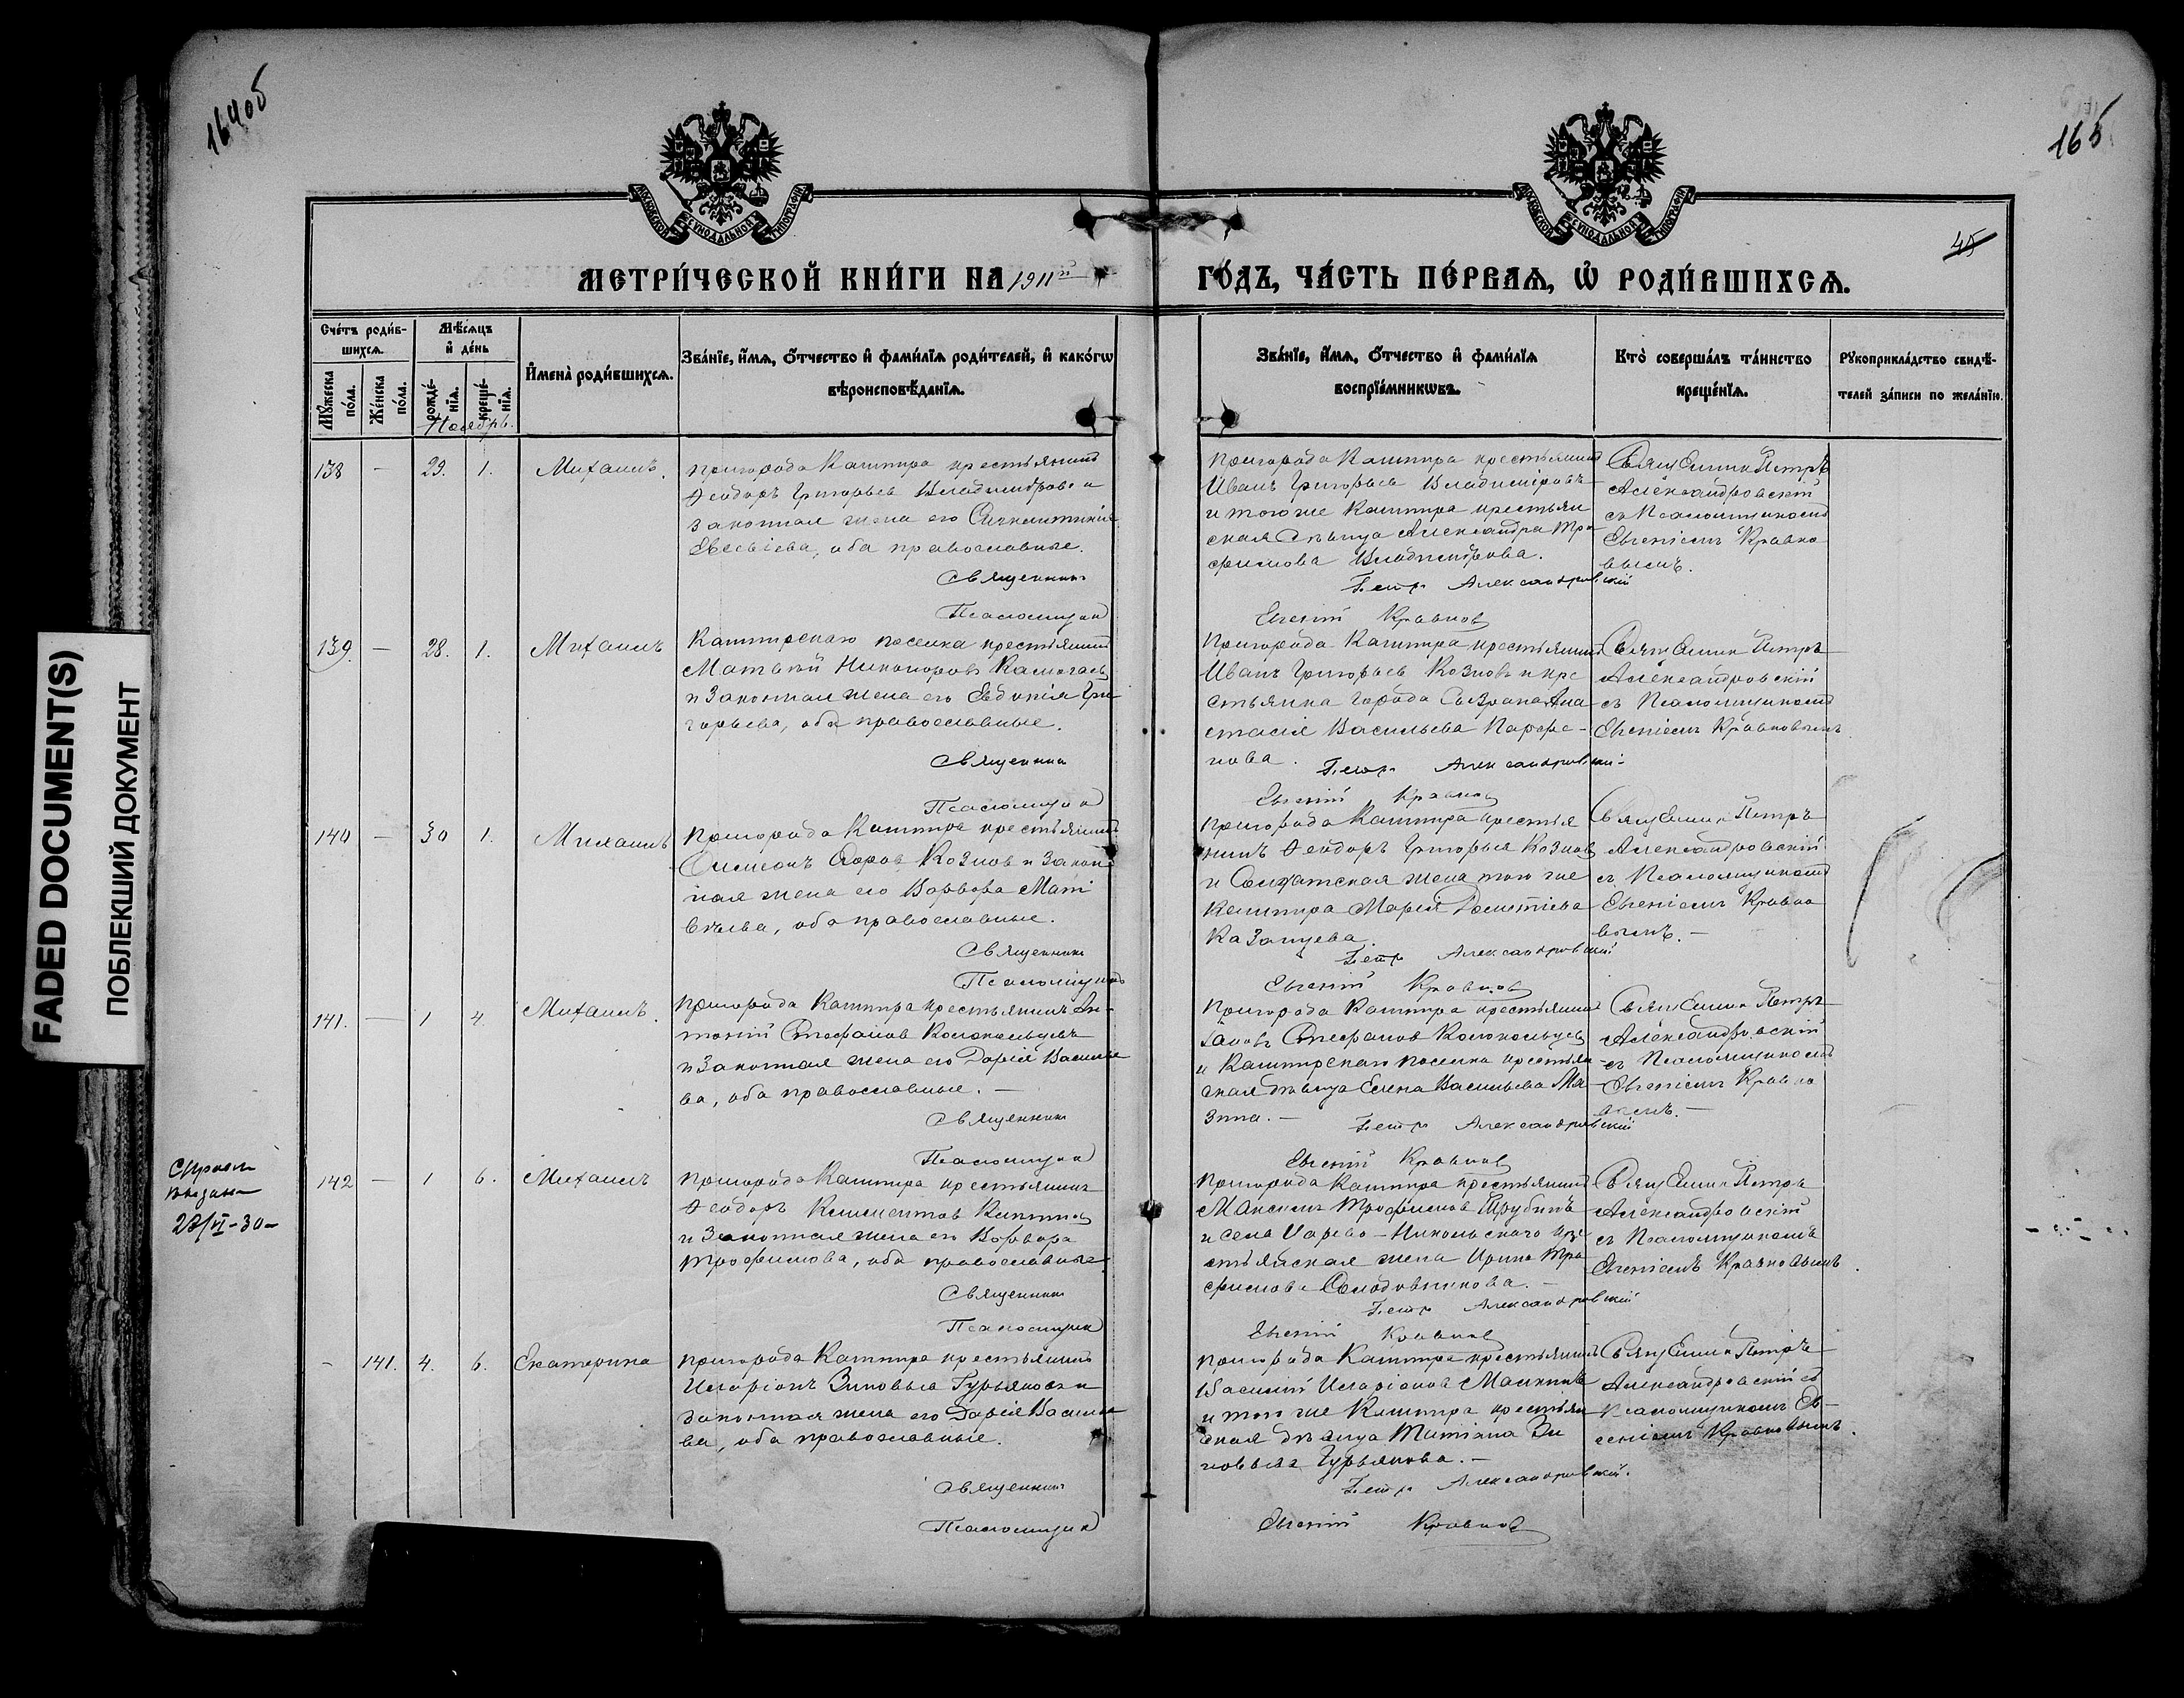 164об
165
45
МЕТРИ́ЧЕСКОЙ КНИ́ГИ НА 1911й
ГО́ДЪ, ЧА́СТЬ ПЕ́РВАЯ, Ѿ РОДИ́ВШИХСЯ.
Сче́тъ роди́в-
шихся.
Мѣ́сяцъ
и҆ де́нь
Мꙋ́жеска по́ла.
Же́нска по́ла.
рожде́-нїя.
креще́-нїя.
И҆мена̀ роди́вшихся.
Зва́нїе, и҆́мя, ѻ҆́тчество и҆ фами́лїя роди́телей, и҆ како́гѡ
вѣроисповѣ́данїя.
Зва́нїе, и҆́мя, ѻ҆́тчество и҆ фами́лїя
воспрїе́мникѡвъ.
Кто̀ соверша́лъ та́инство
креще́нїя.
Рꙋкоприкла́дство свидѣ́-
телей за́писи по жела́нїю.
Ноябрь.
138 — 29. 1. Михаилъ.
пригорода Кашпира крестьянинъ
Ѳеодоръ Григорьевъ Владимировъ и
законная жена его
Евсевіева, оба православные.
Священникъ
Псаломщикъ
пригорода Кашпира крестьянинъ
Иванъ Григорьевъ Владиміровъ
и того же Кашпира крестьян
ская дѣвица Александра Тро
фимова Владимірова.
Петръ Александровскій
Евгеній Кравковъ
Священникъ Петръ
Александровскій
съ Псаломщикомъ
Евгеніемъ Кравко
вымъ.
139. — 28. 1. Михаилъ
Кашпирскаго поселка крестьянинъ
Матвѣй Никоноровъ
и законная жена его Евдокія Гри
горьева, оба православные.
Священникъ
Псаломщикъ
Пригорода Кашпира крестьянинъ
Иванъ Григорьевъ Козловъ и кре
стьянка города Сызрана Ана
стасія Васильева Парфе-
нова.
Петръ Александровскій
Евгеній Кравковъ
Священникъ Петръ
Александровскій
съ Псаломщикомъ
Евгеніемъ Кравковымъ
140 — 30 1. Михаилъ
Пригорода Кашпира крестьянинъ
Симеонъ Козловъ и закон
ная жена его Варвара Мат
вѣева, оба православные.
Священникъ
Псаломщикъ
Пригорода Кашпира крестья
нинъ Ѳеодоръ Григорьевъ Козловъ
и Солдатская жена того же
Кашпира Марія Дометіева
Казанцева.
Петръ Александровскій
Евгеній Кравковъ
Священникъ Петръ
Александровскій
съ Псаломщикомъ
Евгеніемъ Кравко
вымъ. —
141. — 1 4. Михаилъ.
Пригорода Кашпира крестьянинъ Ан-
тоній Стефановъ Колокольцевъ
и законная жена его Дарія Василье
ва, оба православные. —
Священникъ
Псаломщикъ
Пригорода Кашпира крестьянинъ
Іаковъ Стефановъ Колокольцевъ
и Кашпирскаго поселка крестьян
ская дѣвица Елена Васильева Ма
зина. —
Петръ Александровскій
Евгеній Кравковъ
Священникъ Петръ
Александровскій
съ Псаломщикомъ
Евгеніемъ Кравко
вымъ. —
142 — 1 6. Михаилъ
Пригорода Кашпира крестьянинъ
Ѳеодоръ Климентовъ
и законная жена его Варвара
Трофимова, оба православные.
Священникъ
Псаломщикъ
Пригорода Кашпира крестьянинъ
Максимъ Трофимовъ Трубинъ
и села Царево-Никольскаго кре
стьянская жена Ирина Тро
фимова Солодовникова. —
Петръ Александровскій
Евгеній Кравковъ
Священникъ Петръ
Александровскій
съ Псаломщикомъ
Евгеніемъ Кравковымъ.
28/VI-30-
- 141. 4. 6. Екатерина
пригорода Кашпира крестьянинъ
Иларіонъ Зиновьевъ Гурьяновъ и
законная жена его Дарія Василье
ва, оба православные.
Священникъ
Псаломщикъ
пригорода Кашпира крестьянинъ
Василій Иларіоновъ
и того же Кашпира крестьян
ская дѣвица Татіана Зи
новьева Гурьянова. —
Петръ Александровскій.
Евгеній Кравковъ
Священникъ Петръ
Александровскій съ
Псаломщикомъ Ев-
геніемъ Кравковымъ.
FADED DOCUMENT(S)
ПОБЛЕКШИЙ ДОКУМЕНТ